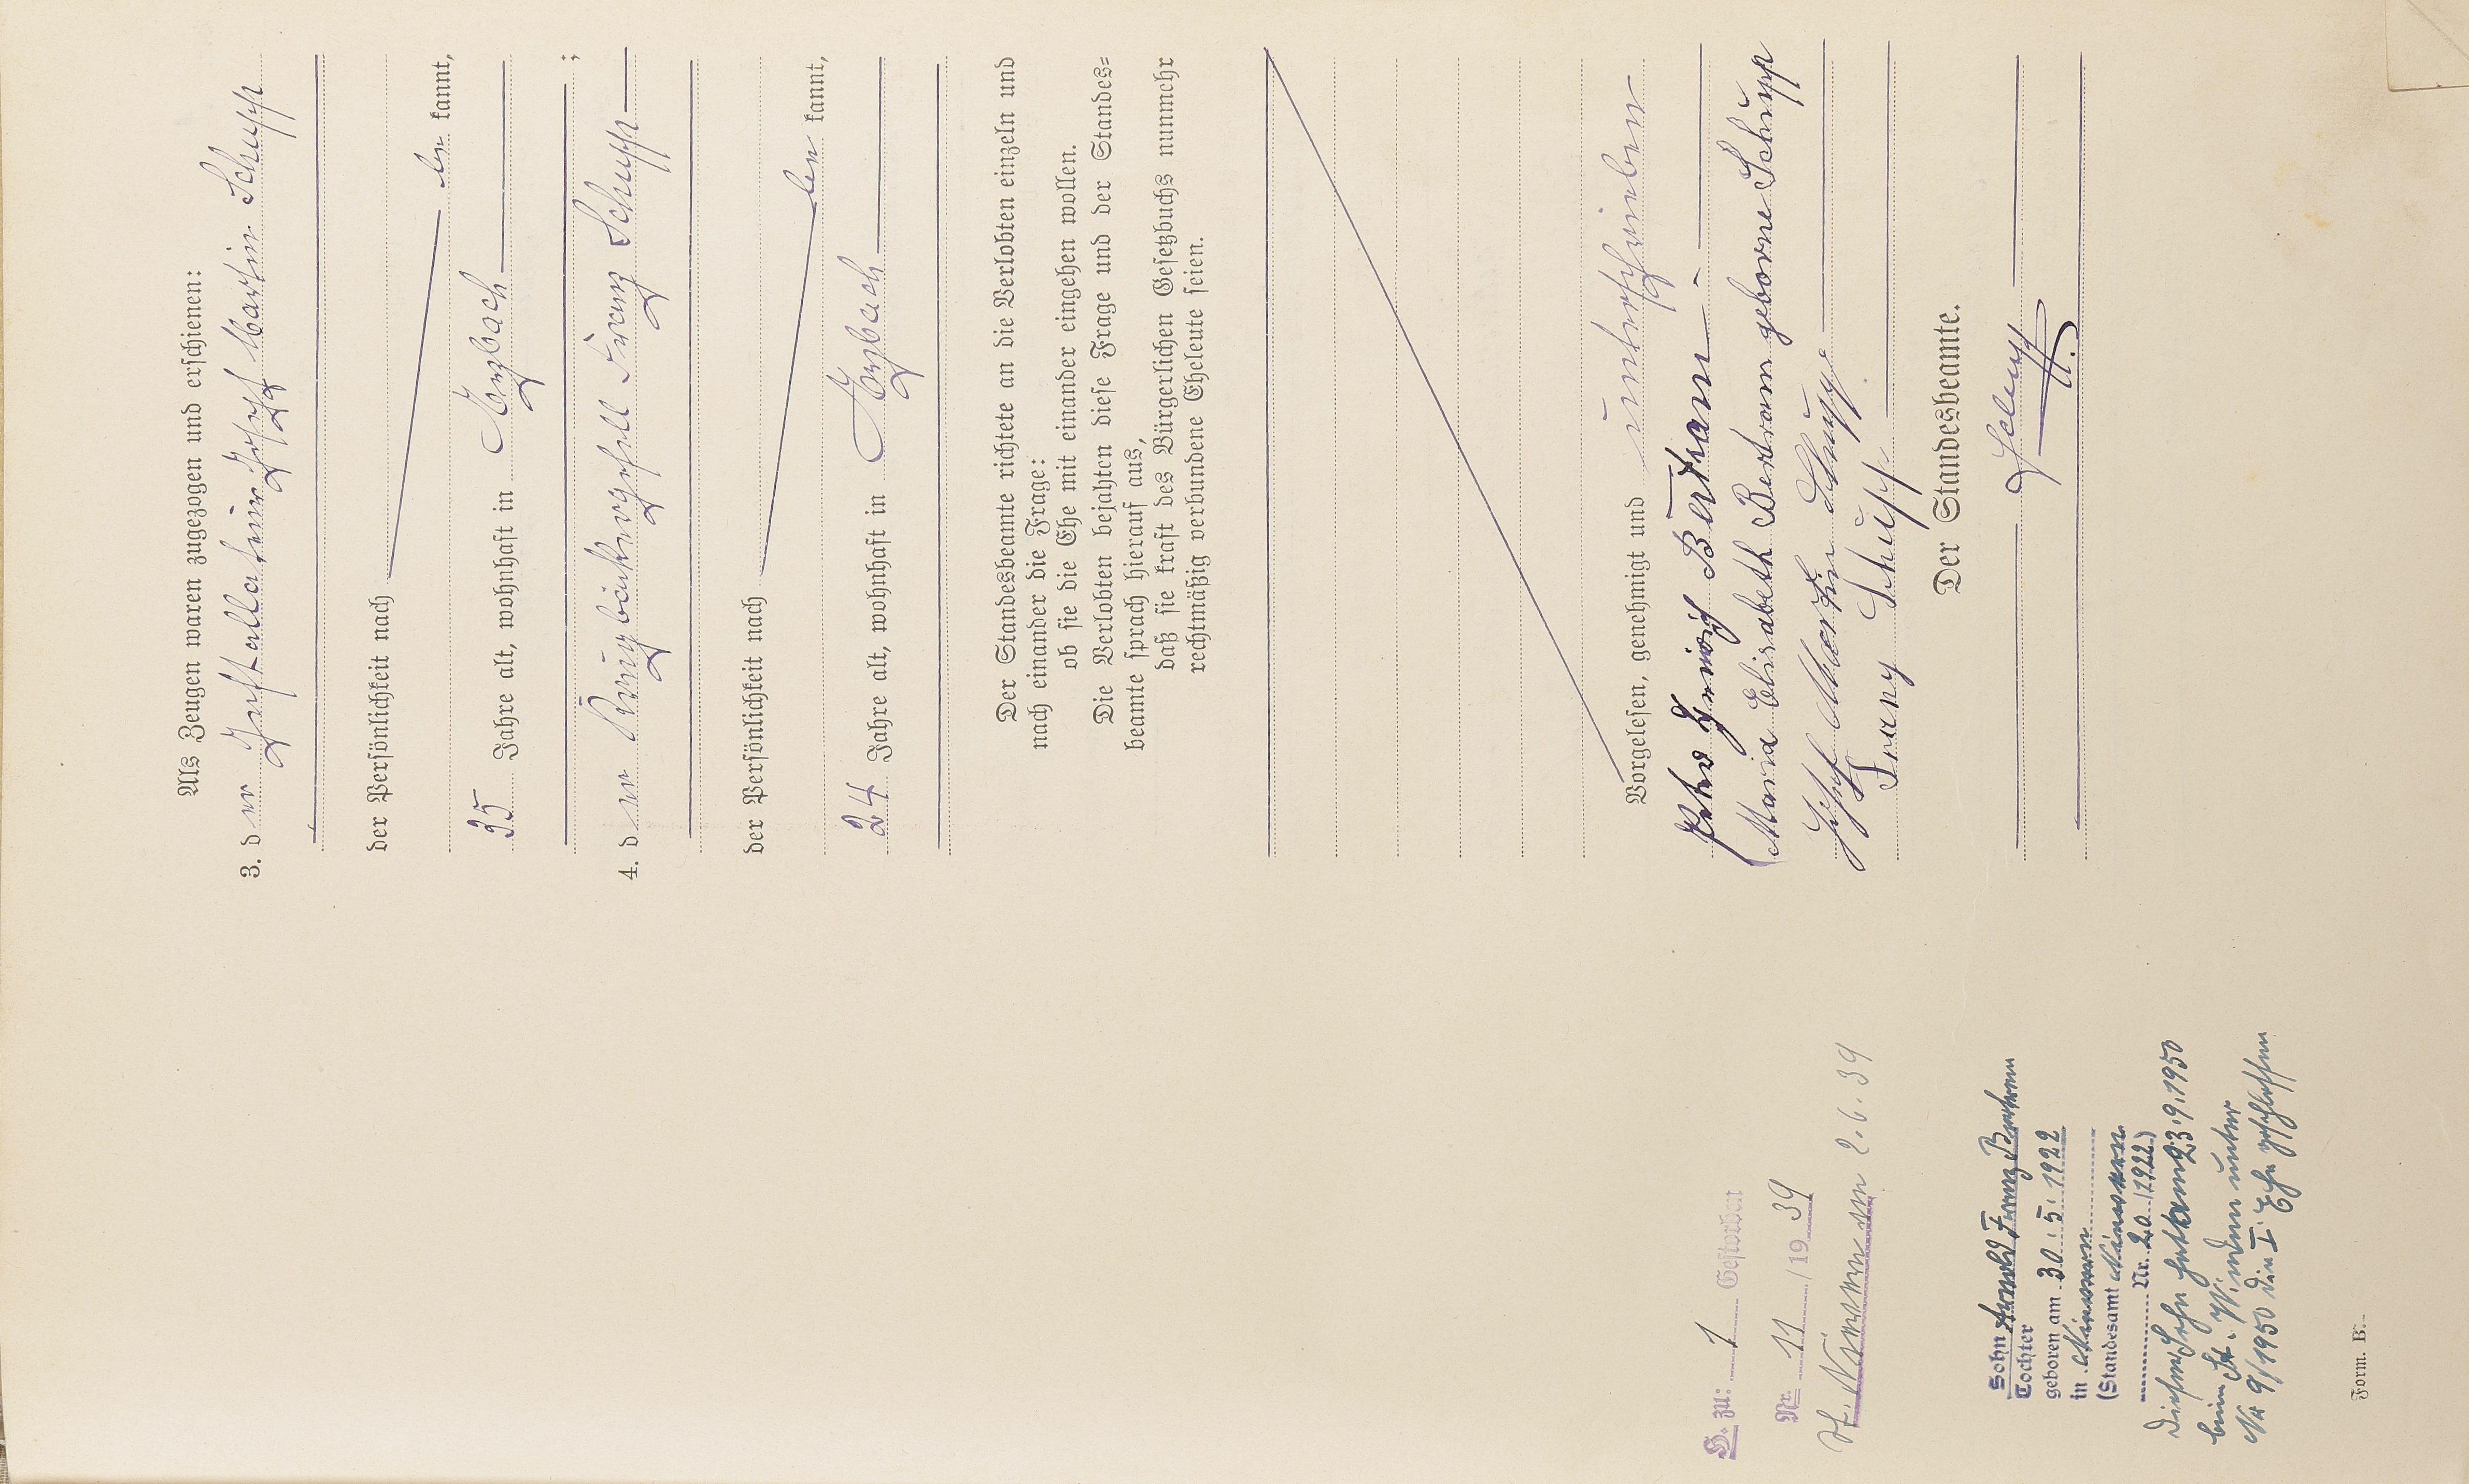 Als Zeugen waren zugezogen und erschienen:
3. der Installateur Josef Martin Schupp
der Persönlichkeit nach
be kannt,
35 Jahre alt, wohnhaft in Arzbach
;
4. der Schupp
der Persönlichkeit nach
be kannt,
24 Jahre alt, wohnhaft in Arzbach
Der Standesbeamte richtete an die Verlobten einzeln und
nach einander die Frage:
ob sie die Ehe mit einander eingehen wollen.
Die Verlobten bejahten diese Frage und der Standes=
beamte sprach hierauf aus,
daß sie kraft des Bürgerlichen Gesetzbuchs nunmehr
rechtmäßig verbundene Eheleute seien.
Vorgelesen, genehmigt und unterschrieben
Bertram
Maria Elisabeth Bertram geborne Schupp
Josef Martin Schupp
Franz Schupp
Der Standesbeamte.
H. zu: 1 Gestorben
Nr. 11 / 19 39
am 2.6.39
Sohn Franz Bertram
Tochter
geboren am 30.5.1922
in
(Standesamt
Nr. 20 /1922)
Dieser Sohn hat am 23.9.1950
beim St. A. unter
Nr 9/1950 die I. Ehe geschlossen
Form. B.